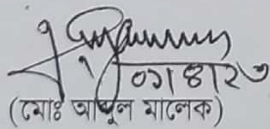 ০৭।৪।২৩
(মোঃ আব্দুল মালেক)